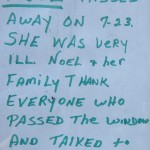 PASSED
AWAY ON 7-23.
SHE WAS VERY
ILL. NOEL & her
FAMILY THANK
EVERYONE WHO
PASSED THE WINDOW
AND TALKED to